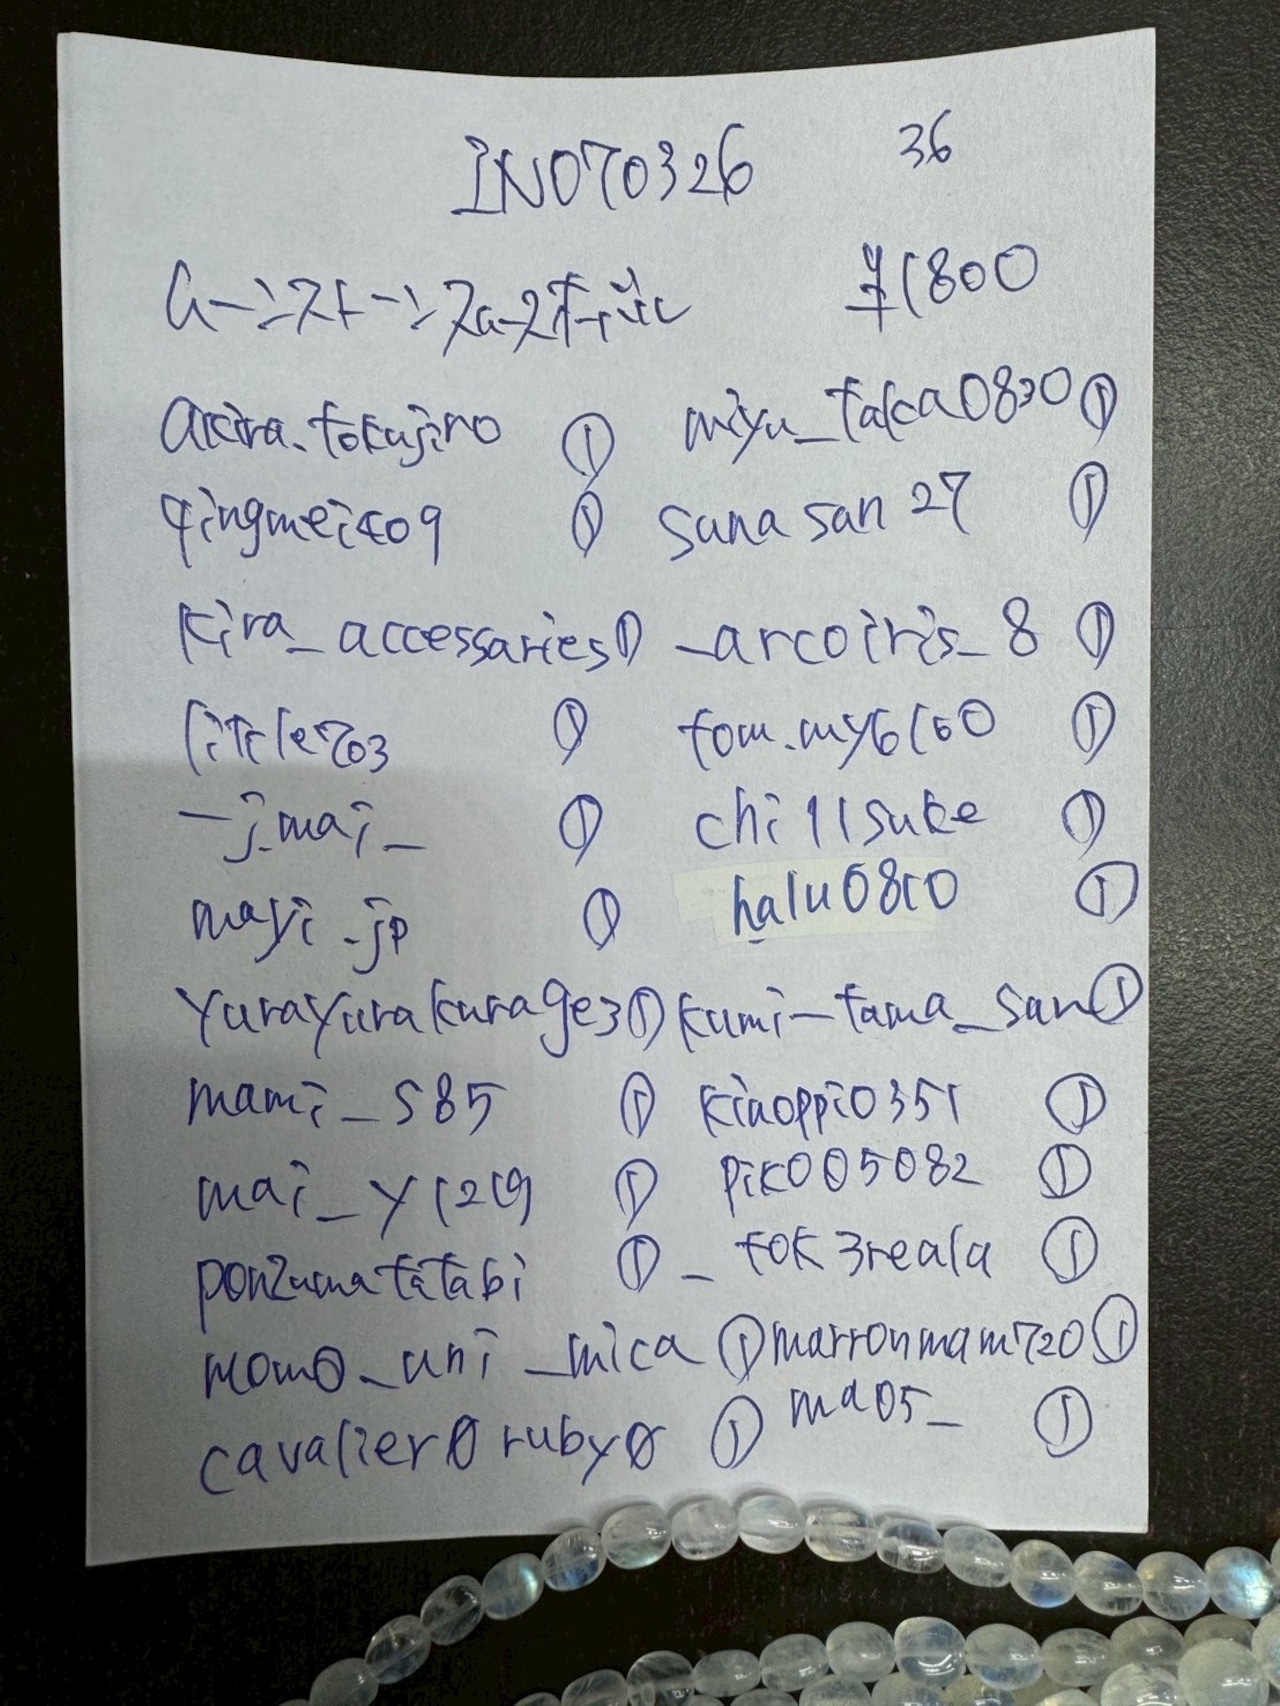 INO70326 36
ムーンストーン ¥1800
akira.tokujiro ① miyu_taka0830 ①
qingmei409 ① sana san 27 ①
kira_accessaries ① _arcoiris_8 ①
little703 ① tom.my6160 ①
_j.mai_ ① chi11suke ①
mayi_jp ① halu0810 ①
yurayurakurage3 ① kumi_tama_san ①
mami_s85 ① kiaoppi0351 ①
mai_y1219 ① piko05082 ①
ponzumatatabi ① _tok3reala ①
momo_uni_mica ① marronmam720 ①
cavalier0ruby0 ① ma05_ ①